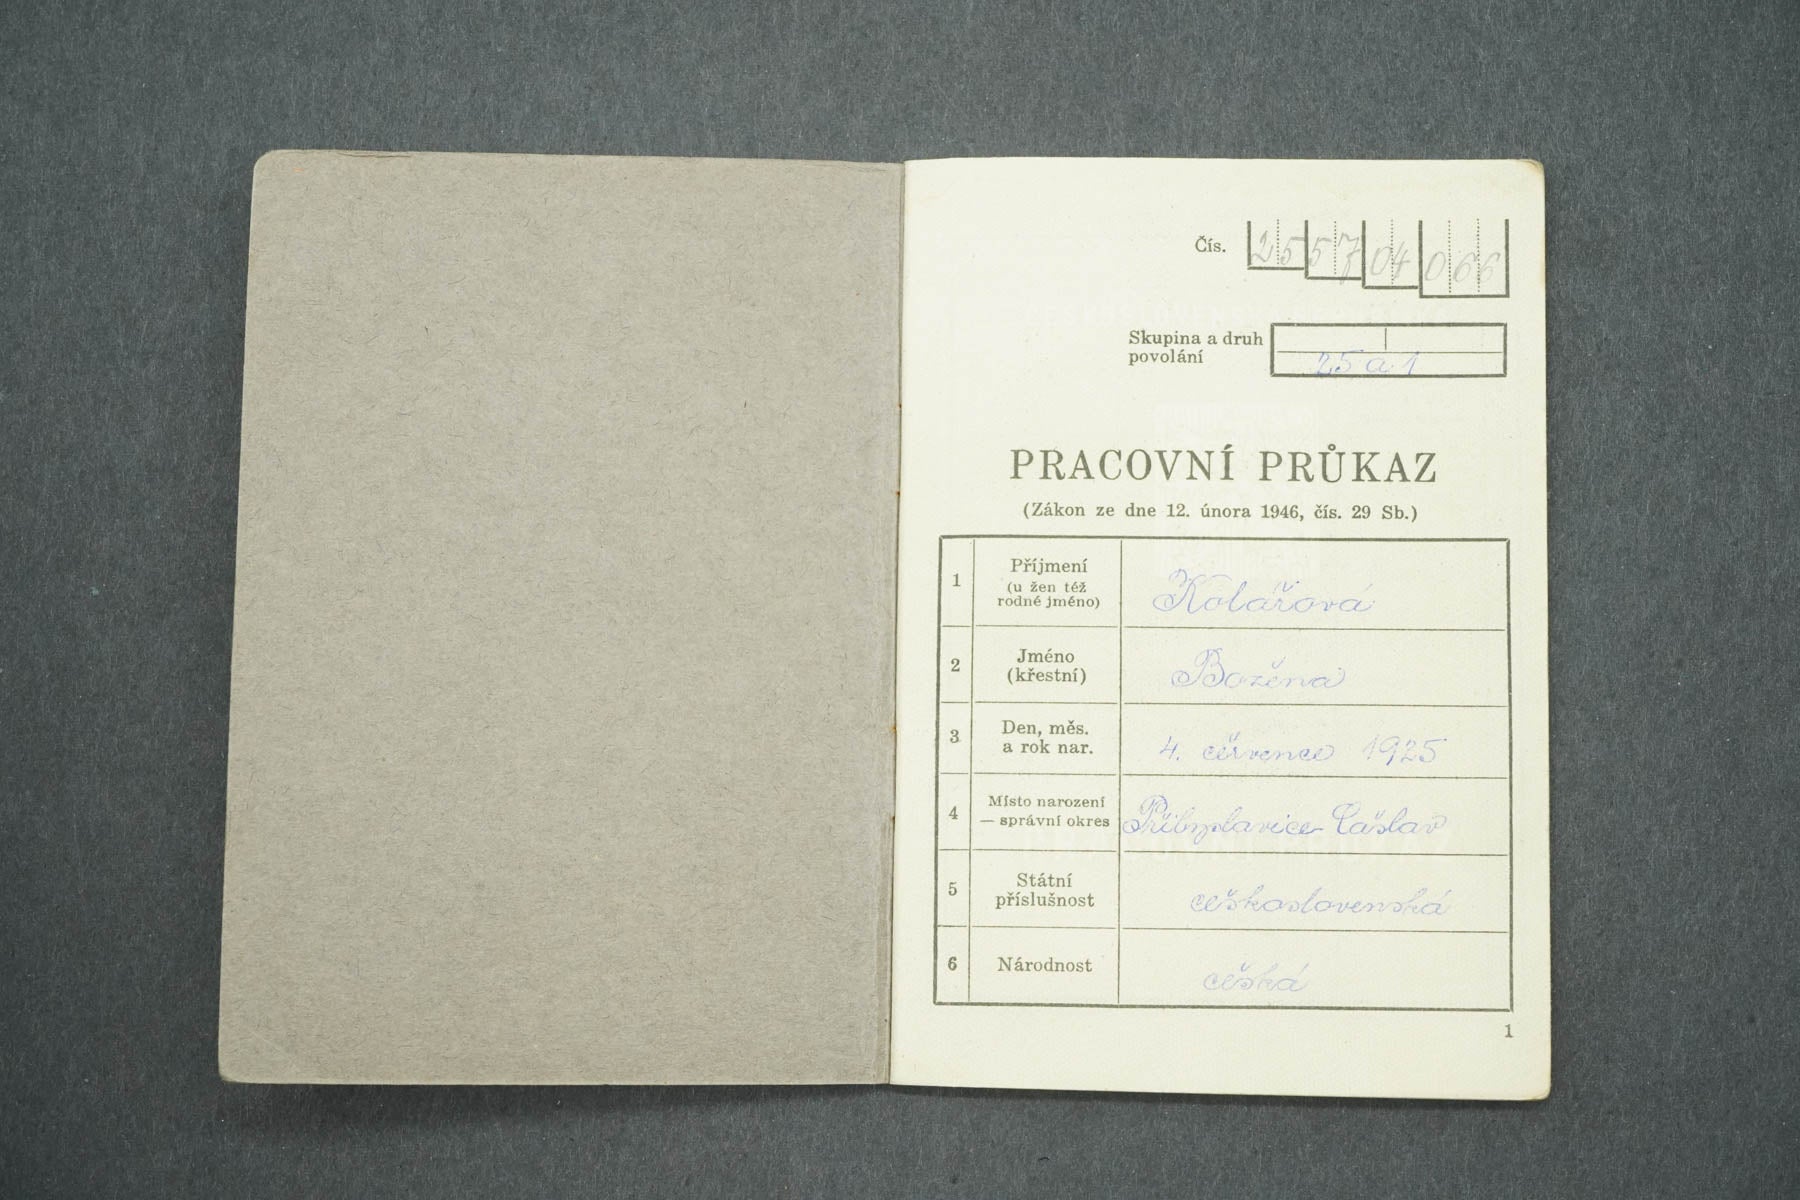 Čís. 25 57 04 066
Skupina a druh
povolání
25 a 1
PRACOVNÍ PRŮKAZ
(Zákon ze dne 12. února 1946, čís. 29 Sb.)
1
Příjmení
(u žen též
rodné jméno)
Kolářová
2
Jméno
(křestní)
Božena
3
Den, měs.
a rok nar.
4. července 1925
4
Místo narození
— správní okres
Přibyslavice Čáslav
5
Státní
příslušnost
československá
6
Národnost
česká
1